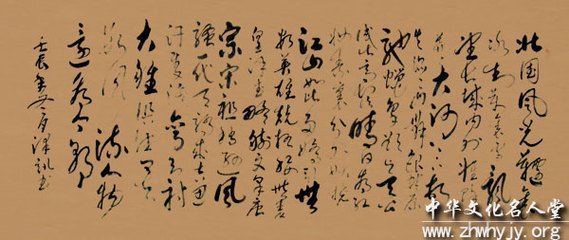 北国风光千里
冰封万里雪飘
望长城内外惟馀
莽莽大河上下顿
失滔滔山舞银蛇原
驰蜡象欲与天公
试比高须晴日看红
装素裹分外妖娆
江山如此多娇引无
数英雄竞折腰惜秦
皇汉武略输文采唐
宗宋祖稍逊风
骚一代天骄成吉思
汗只识弯弓射
大雕俱往矣
数风流人物
还看今朝
壬辰年冬月
中华文化名人堂
www.zhwhyjy.org